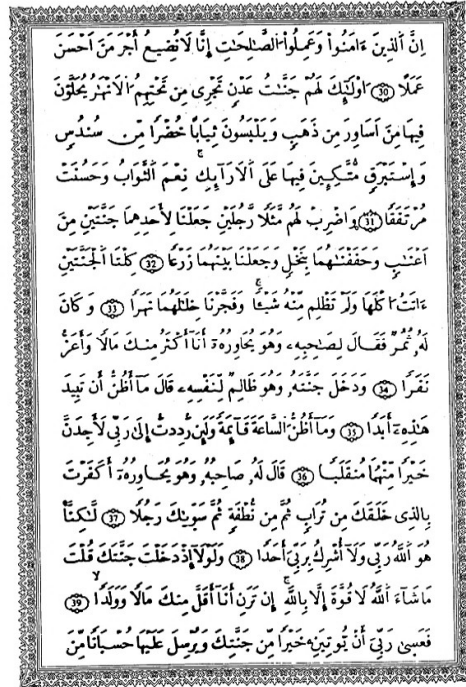 اِنَّ اَلذِينَ ءَامَنُواْ وَعَمِلُواْ اُلصَّٰلِحَٰتِ إِنَّا لَا نُضِيعُ أَجْرَ مَنَ اَحْسَنَ
عَمَلًا 30 ا۟وْلَٰٓئِكَ لَهُمْ جَنَّٰتُ عَدْنٍ تَجْرِى مِن تَحْتِهِمُ اُلَانْهَٰرُ يُحَلَّوْنَ
فِيهَا مِنَ اَسَاوِرَ مِن ذَهَبٍ وَيَلْبَسُونَ ثِيَابًا خُضْرًا مِّن سُندُسٍ
وَإِسْتَبْرَقٍ مُّتَّكِـِٕينَ فِيهَا عَلَى اَلَارَآئِكِ نِعْمَ اَلثَّوَابُ وَحَسُنَتْ
مُرْتَفَقًا 31 وَاضْرِبْ لَهُم مَّثَلًا رَّجُلَيْنِ جَعَلْنَا لِأَحَدِهِمَا جَنَّتَيْنِ مِنَ
اَعْنَٰبٍ وَحَفَفْنَٰهُمَا بِنَخْلٍ وَجَعَلْنَا بَيْنَهُمَا زَرْعًا 32 كِلْتَا اَلْجَنَّتَيْنِ
ءَاتَتُ ا۟كْلَهَا وَلَمْ تَظْلِم مِّنْهُ شَيْـًٔا وَفَجَّرْنَا خِلَٰلَهُمَا نَهَرًا 33 وَكَانَ
لَهُۥ ثُمُرٌ فَقَالَ لِصَٰحِبِهِۦ وَهُوَ يُحَاوِرُهُۥٓ أَنَآ أَكْثَرُ مِنكَ مَالًا وَأَعَزُّ
نَفَرًا 34 وَدَخَلَ جَنَّتَهُۥ وَهُوَ ظَالِمٌ لِّنَفْسِهِۦ قَالَ مَآ أَظُنُّ أَن تَبِيدَ
هَٰذِهِۦٓ أَبَدًا 35 وَمَآ أَظُنُّ اُلسَّاعَةَ قَآئِمَةً وَلَئِن رُّدِدتُّ إِلَىٰ رَبِّى لَأَجِدَنَّ
خَيْرًا مِّنْهُمَا مُنقَلَبًا 36 قَالَ لَهُۥ صَاحِبُهُۥ وَهُوَ يُحَاوِرُهُۥٓ أَكَفَرْتَ
بِالذِى خَلَقَكَ مِن تُرَابٍ ثُمَّ مِن نُّطْفَةٍ ثُمَّ سَوّ۪ىٰكَ رَجُلًا 37 لَّٰكِنَّا۠
هُوَ اَللَّهُ رَبِّى وَلَآ أُشْرِكُ بِرَبِّىَ أَحَدًا 38 وَلَوْلَآ إِذْ دَخَلْتَ جَنَّتَكَ قُلْتَ
مَا شَآءَ اَللَّهُ لَا قُوَّةَ إِلَّا بِاللَّهِ إِن تَرَنِ أَنَآ أَقَلَّ مِنكَ مَالًا وَوَلَدًا 39
فَعَسَىٰ رَبِّىَ أَنْ يُّوتِيَنِۦ خَيْرًا مِّن جَنَّتِكَ وَيُرْسِلَ عَلَيْهَا حُسْبَانًا مِّنَ